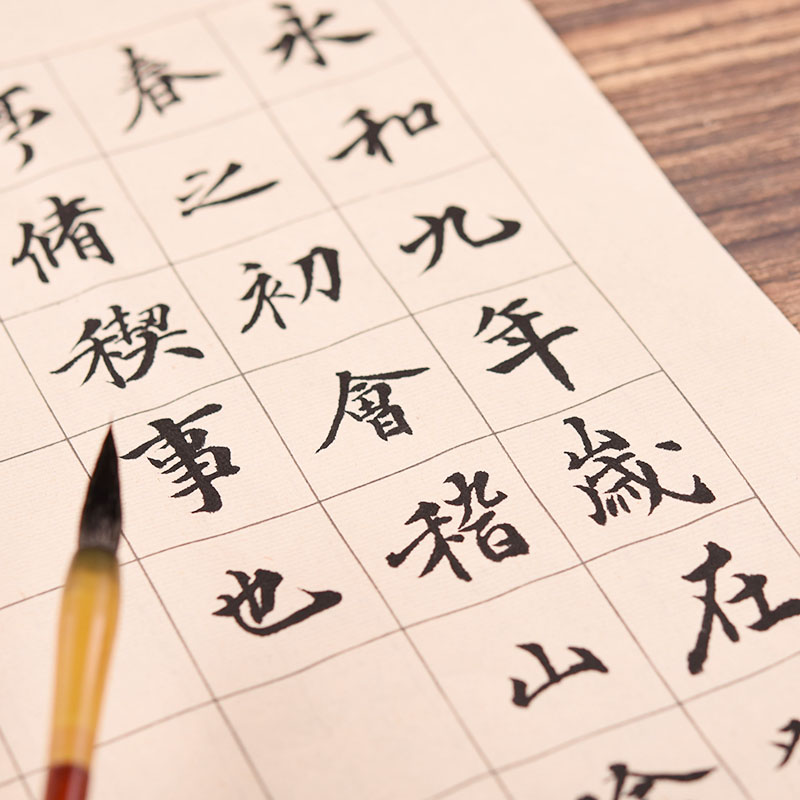 永和九年歲在
春之初會稽山
亭脩稧事也